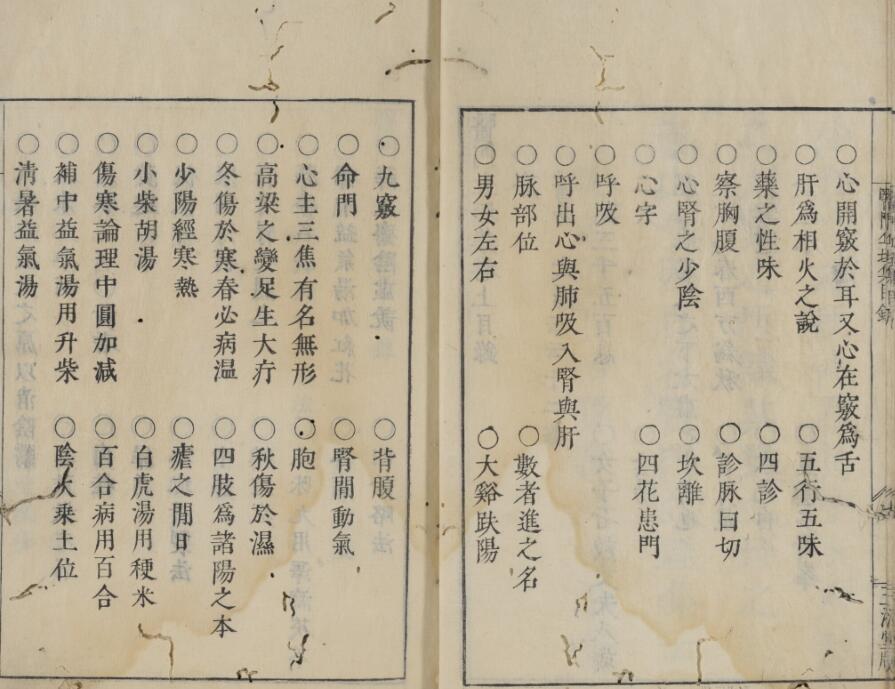 ○心開竅於耳又心在竅爲舌
○肝爲相火之說　○五行五味
○藥之性味　○四診
○察胸腹　○診脉曰切
○心腎之少陰　○坎離
○心字　○四花患門
○呼吸
○呼出心與肺吸入腎與肝
○脉部位　○數者進之名
○男女左右　○大谿趺陽
○九竅　○背腹
○命門　○腎間動氣
○心主三焦有名無形　○胞
○高梁之變足生大疔　○秋傷於濕
○冬傷於寒春必病温　○四肢爲諸陽之本
○少陽經寒熱　○瘧之間日
○小柴胡湯　○白虎湯用稉米
○傷寒論理中圓加減　○百合病用百合
○補中益氣湯用升柴　○陰火乘土位
○清暑益氣湯